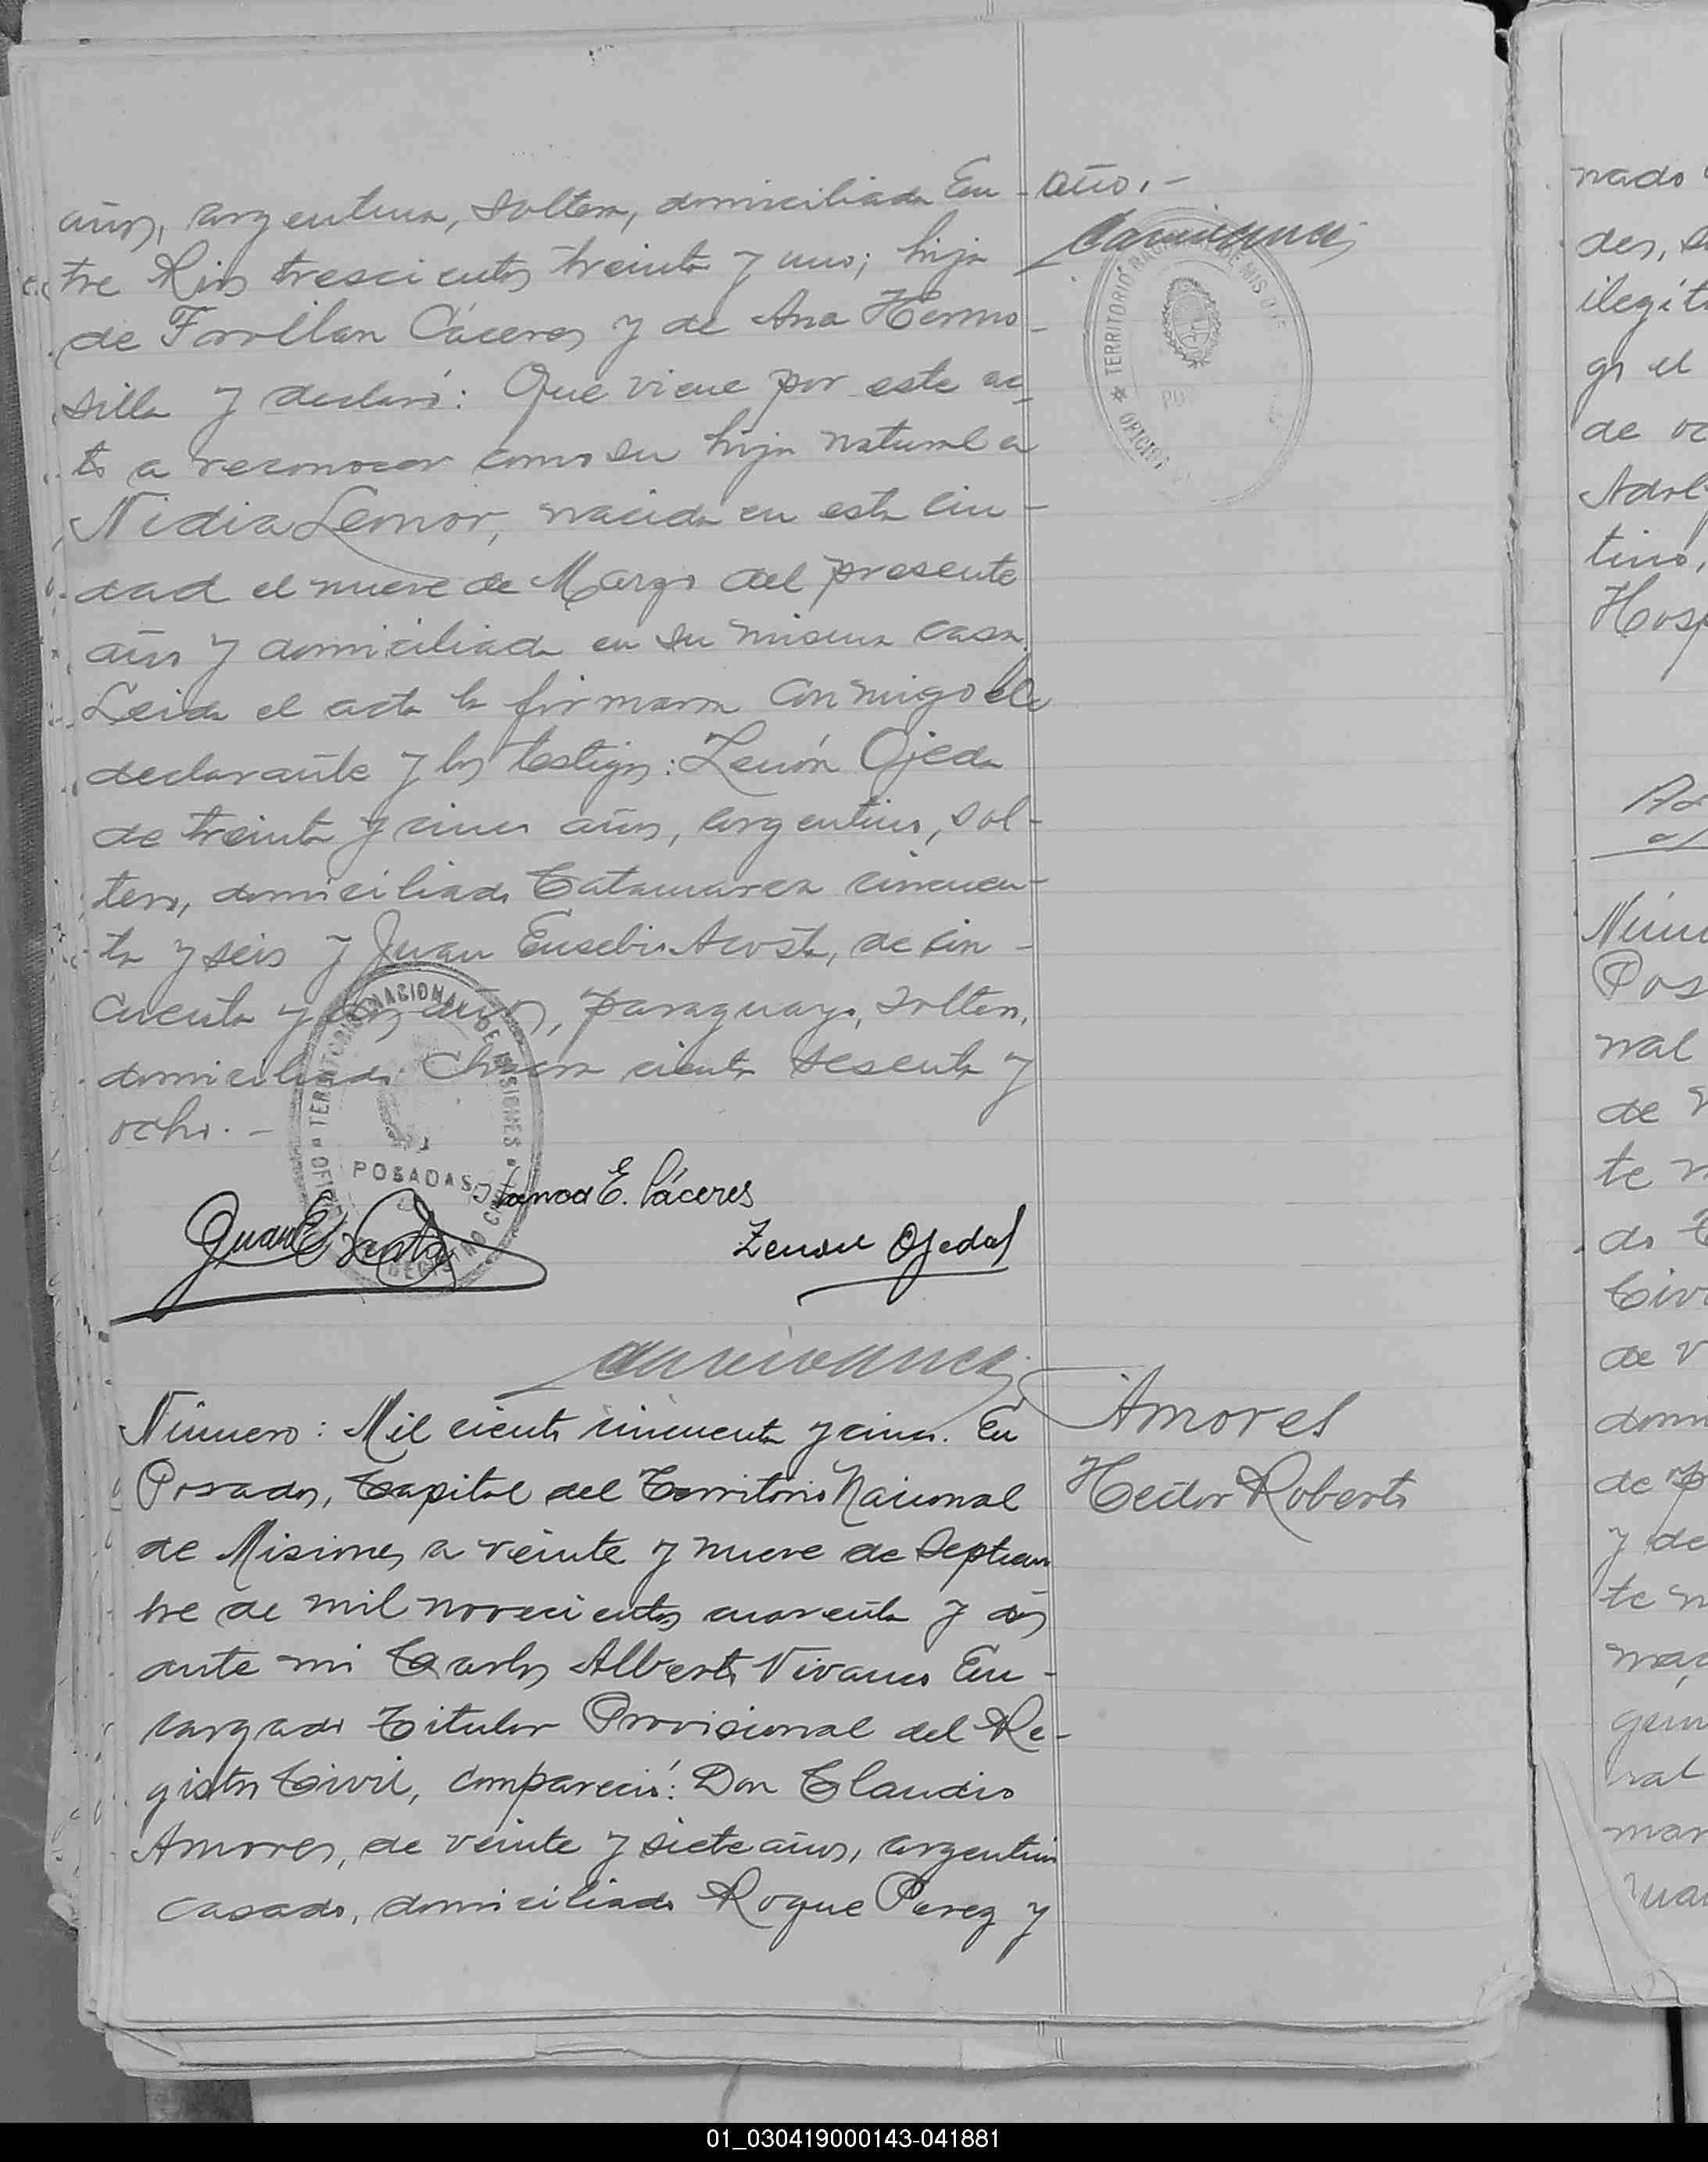 años, argentina, soltera, domiciliada En-
tre Rios trescientos treinta y uno; hija
de Froilan Cáceres y de Ana Hermo-
silla y declaró: Que viene por este ac-
to a reconocer como su hija natural a
Nidia Leonor, nacida en esta ciu-
dad el nueve de Marzo del presente
año y domiciliada en su misma casa.
Leida el acta la firmaron conmigo el
declarante y los testigos: Zenón Ojeda
de treinta y cinco años, argentino, sol-
tero, domiciliado Catamarca cincuen-
ta y seis y Juan Eusebio Acosta, de cin-
cuenta y dos años, paraguayo, soltero,
domiciliado Chacra ciento sesenta y
ocho.-
E. Cáceres
Juan E. Acosta
Zenon Ojeda
año.-
TERRITORIO NACIONAL DE MISIONES
OFICINA
TERRITORIO NACIONAL DE MISIONES
POSADAS
REGISTRO
Número: Mil ciento cincuenta y cinco. En
Posadas, Capital del Territorio Nacional
de Misiones a veinte y nueve de Septiem
bre de mil novecientos cuarenta y dos
ante mi Carlos Alberto Vivanco En-
cargado Titular Provisional del Re-
gistro Civil, compareció: Don Claudio
Amores, de veinte y siete años, argentino
casado, domiciliado Roque Perez y
Amores
Hector Roberto
nado
des, 
ilegít
go el
de oc
Adol
tino,
Hosp
Núm
Pos
nal
de
te n
do
Civi
de v
domi
de
y de
te n
mar
01_030419000143-041881